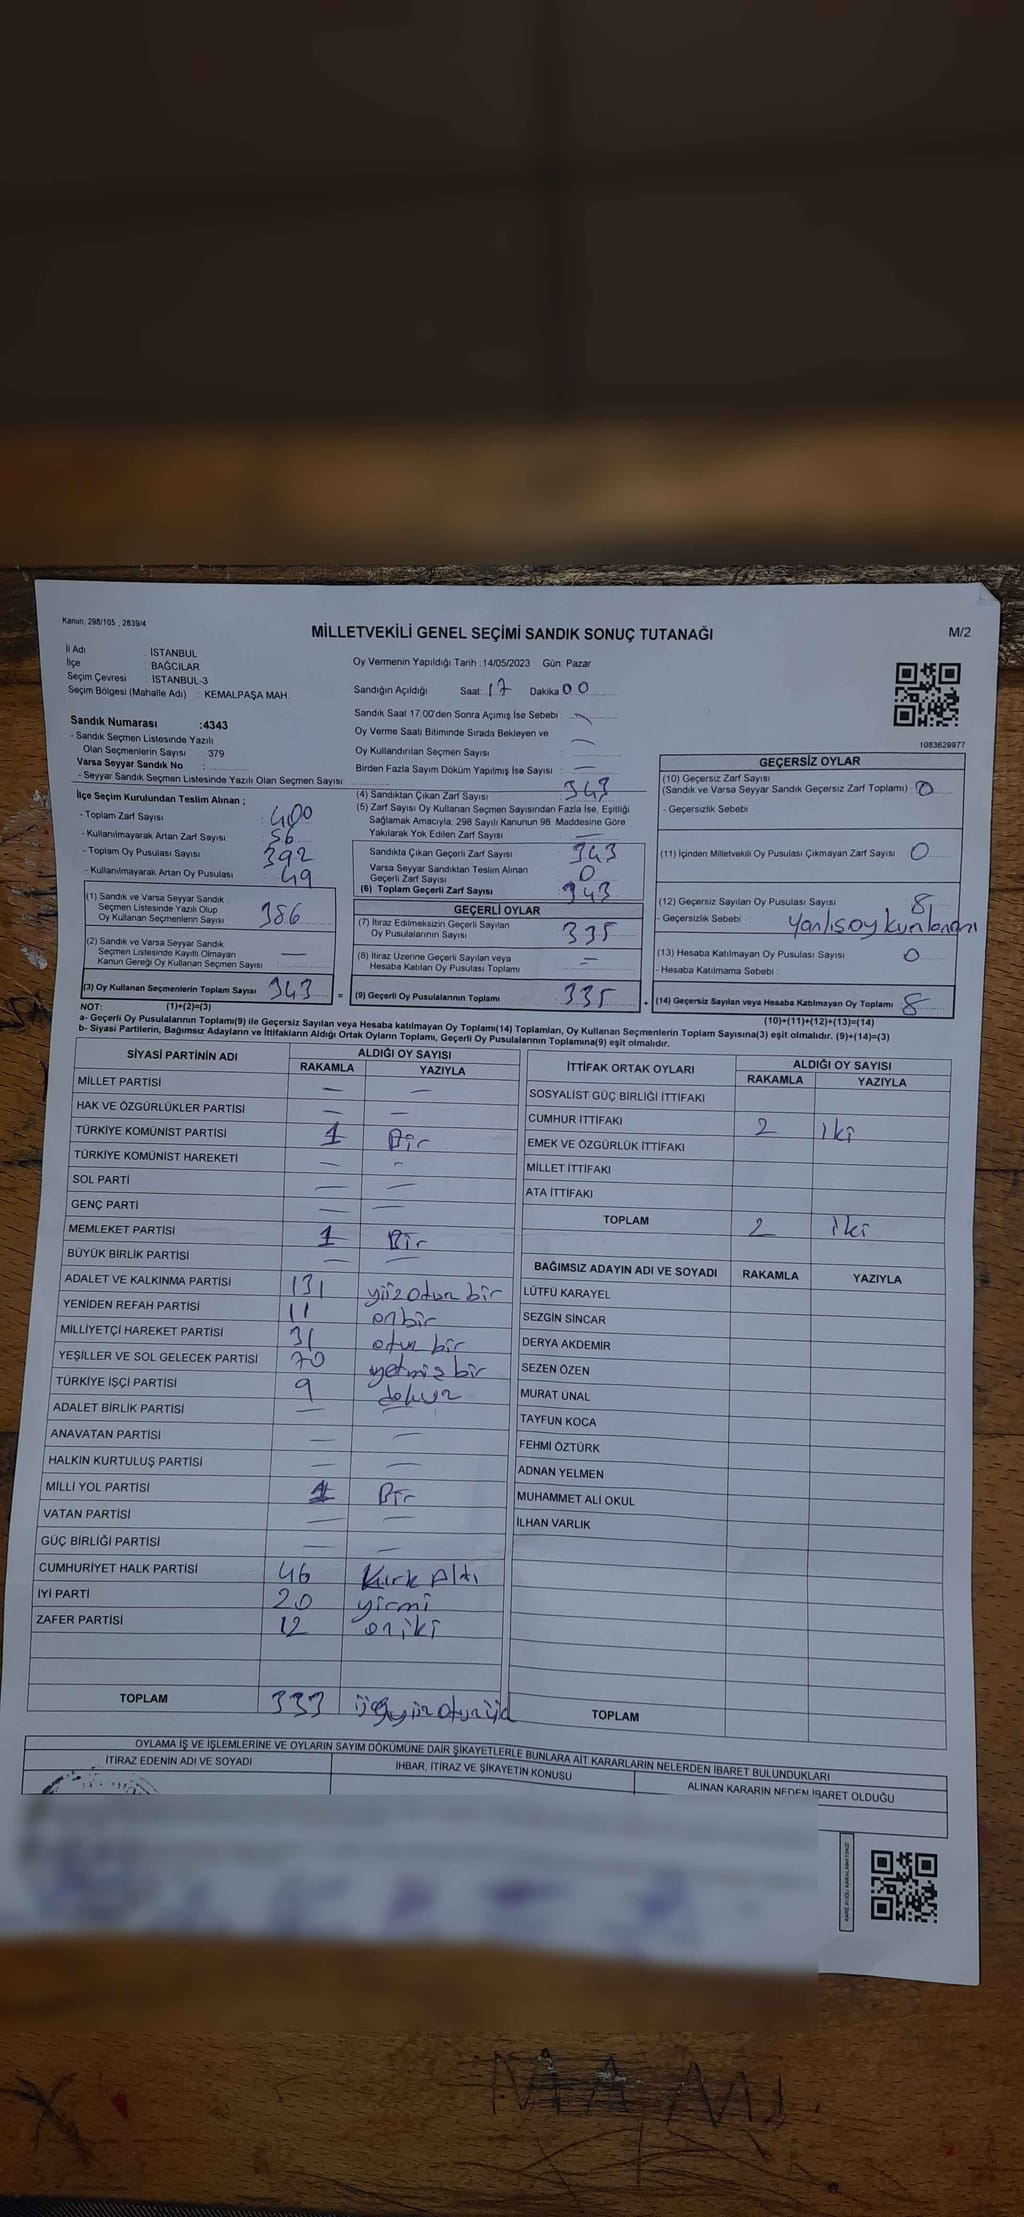 Kanun: 298/105 , 2839/4
MİLLETVEKİLİ GENEL SEÇİMİ SANDIK SONUÇ TUTANAĞI
M/2
İl Adı : İSTANBUL
İlçe : BAĞCILAR
Seçim Çevresi : İSTANBUL-3
Seçim Bölgesi (Mahalle Adı) : KEMALPAŞA MAH.
Sandık Numarası :4343
- Sandık Seçmen Listesinde Yazılı
Olan Seçmenlerin Sayısı : 379
Varsa Seyyar Sandık No :
- Seyyar Sandık Seçmen Listesinde Yazılı Olan Seçmen Sayısı:
Oy Vermenin Yapıldığı Tarih :14/05/2023 Gün: Pazar
Sandığın Açıldığı Saat: 17 Dakika 00
Sandık Saat 17:00'den Sonra Açımış İse Sebebi :
Oy Verme Saati Bitiminde Sırada Bekleyen ve
Oy Kullandırılan Seçmen Sayısı : —
Birden Fazla Sayım Döküm Yapılmış İse Sayısı : —
1083629977
İlçe Seçim Kurulundan Teslim Alınan ;
- Toplam Zarf Sayısı : 400
- Kullanılmayarak Artan Zarf Sayısı : 56
- Toplam Oy Pusulası Sayısı : 392
- Kullanılmayarak Artan Oy Pusulası : 49
(1) Sandık ve Varsa Seyyar Sandık
Seçmen Listesinde Yazılı Olup
Oy Kullanan Seçmenlerin Sayısı : 386
(2) Sandık ve Varsa Seyyar Sandık
Seçmen Listesinde Kayıtlı Olmayan
Kanun Gereği Oy Kullanan Seçmen Sayısı : —
(3) Oy Kullanan Seçmenlerin Toplam Sayısı : 343
(4) Sandıktan Çıkan Zarf Sayısı : 343
(5) Zarf Sayısı Oy Kullanan Seçmen Sayısından Fazla İse, Eşitliği
Sağlamak Amacıyla, 298 Sayılı Kanunun 98. Maddesine Göre
Yakılarak Yok Edilen Zarf Sayısı : —
Sandıkta Çıkan Geçerli Zarf Sayısı : 343
Varsa Seyyar Sandıktan Teslim Alınan
Geçerli Zarf Sayısı : 0
(6) Toplam Geçerli Zarf Sayısı : 343
GEÇERLİ OYLAR
(7) İtiraz Edilmeksizin Geçerli Sayılan
Oy Pusulalarının Sayısı : 335
(8) İtiraz Üzerine Geçerli Sayılan veya
Hesaba Katılan Oy Pusulası Toplamı : —
= (9) Geçerli Oy Pusulalarının Toplamı : 335
GEÇERSİZ OYLAR
(10) Geçersiz Zarf Sayısı
(Sandık ve Varsa Seyyar Sandık Geçersiz Zarf Toplamı) : 0
- Geçersizlik Sebebi :
(11) İçinden Milletvekili Oy Pusulası Çıkmayan Zarf Sayısı : 0
(12) Geçersiz Sayılan Oy Pusulası Sayısı : 8
- Geçersizlik Sebebi : yanlış oy kullanımı
(13) Hesaba Katılmayan Oy Pusulası Sayısı : 0
- Hesaba Katılmama Sebebi :
+ (14) Geçersiz Sayılan veya Hesaba Katılmayan Oy Toplamı : 8
NOT: (1)+(2)=(3)
(10)+(11)+(12)+(13)=(14)
a- Geçerli Oy Pusulalarının Toplamı(9) ile Geçersiz Sayılan veya Hesaba katılmayan Oy Toplamı(14) Toplamları, Oy Kullanan Seçmenlerin Toplam Sayısına(3) eşit olmalıdır. (9)+(14)=(3)
b- Siyasi Partilerin, Bağımsız Adayların ve İttifakların Aldığı Ortak Oyların Toplamı, Geçerli Oy Pusulalarının Toplamına(9) eşit olmalıdır.
SİYASİ PARTİNİN ADI ALDIĞI OY SAYISI
RAKAMLA YAZIYLA
MİLLET PARTİSİ — —
HAK VE ÖZGÜRLÜKLER PARTİSİ — —
TÜRKİYE KOMÜNİST PARTİSİ 1 Bir
TÜRKİYE KOMÜNİST HAREKETİ — —
SOL PARTİ — —
GENÇ PARTİ — —
MEMLEKET PARTİSİ 1 Bir
BÜYÜK BİRLİK PARTİSİ — —
ADALET VE KALKINMA PARTİSİ 131 yüzotuz bir
YENİDEN REFAH PARTİSİ 11 onbir
MİLLİYETÇİ HAREKET PARTİSİ 31 otuz bir
YEŞİLLER VE SOL GELECEK PARTİSİ 70 yetmiş bir
TÜRKİYE İŞÇİ PARTİSİ 9 dokuz
ADALET BİRLİK PARTİSİ — —
ANAVATAN PARTİSİ — —
HALKIN KURTULUŞ PARTİSİ — —
MİLLİ YOL PARTİSİ 1 Bir
VATAN PARTİSİ — —
GÜÇ BİRLİĞİ PARTİSİ — —
CUMHURİYET HALK PARTİSİ 46 Kırk Altı
İYİ PARTİ 20 yirmi
ZAFER PARTİSİ 12 oniki
TOPLAM 333 üçyüzotuzüç
İTTİFAK ORTAK OYLARI ALDIĞI OY SAYISI
RAKAMLA YAZIYLA
SOSYALİST GÜÇ BİRLİĞİ İTTİFAKI
CUMHUR İTTİFAKI 2 iki
EMEK VE ÖZGÜRLÜK İTTİFAKI
MİLLET İTTİFAKI
ATA İTTİFAKI
TOPLAM 2 iki
BAĞIMSIZ ADAYIN ADI VE SOYADI RAKAMLA YAZIYLA
LÜTFÜ KARAYEL
SEZGİN SİNCAR
DERYA AKDEMİR
SEZEN ÖZEN
MURAT ÜNAL
TAYFUN KOCA
FEHMİ ÖZTÜRK
ADNAN YELMEN
MUHAMMET ALİ OKUL
İLHAN VARLIK
TOPLAM
OYLAMA İŞ VE İŞLEMLERİNE VE OYLARIN SAYIM DÖKÜMÜNE DAİR ŞİKAYETLERLE BUNLARA AİT KARARLARIN NELERDEN İBARET BULUNDUKLARI
İTİRAZ EDENİN ADI VE SOYADI
İHBAR, İTİRAZ VE ŞİKAYETİN KONUSU
ALINAN KARARIN NEDEN İBARET OLDUĞU
KARE KODU KARALAMAYINIZ!